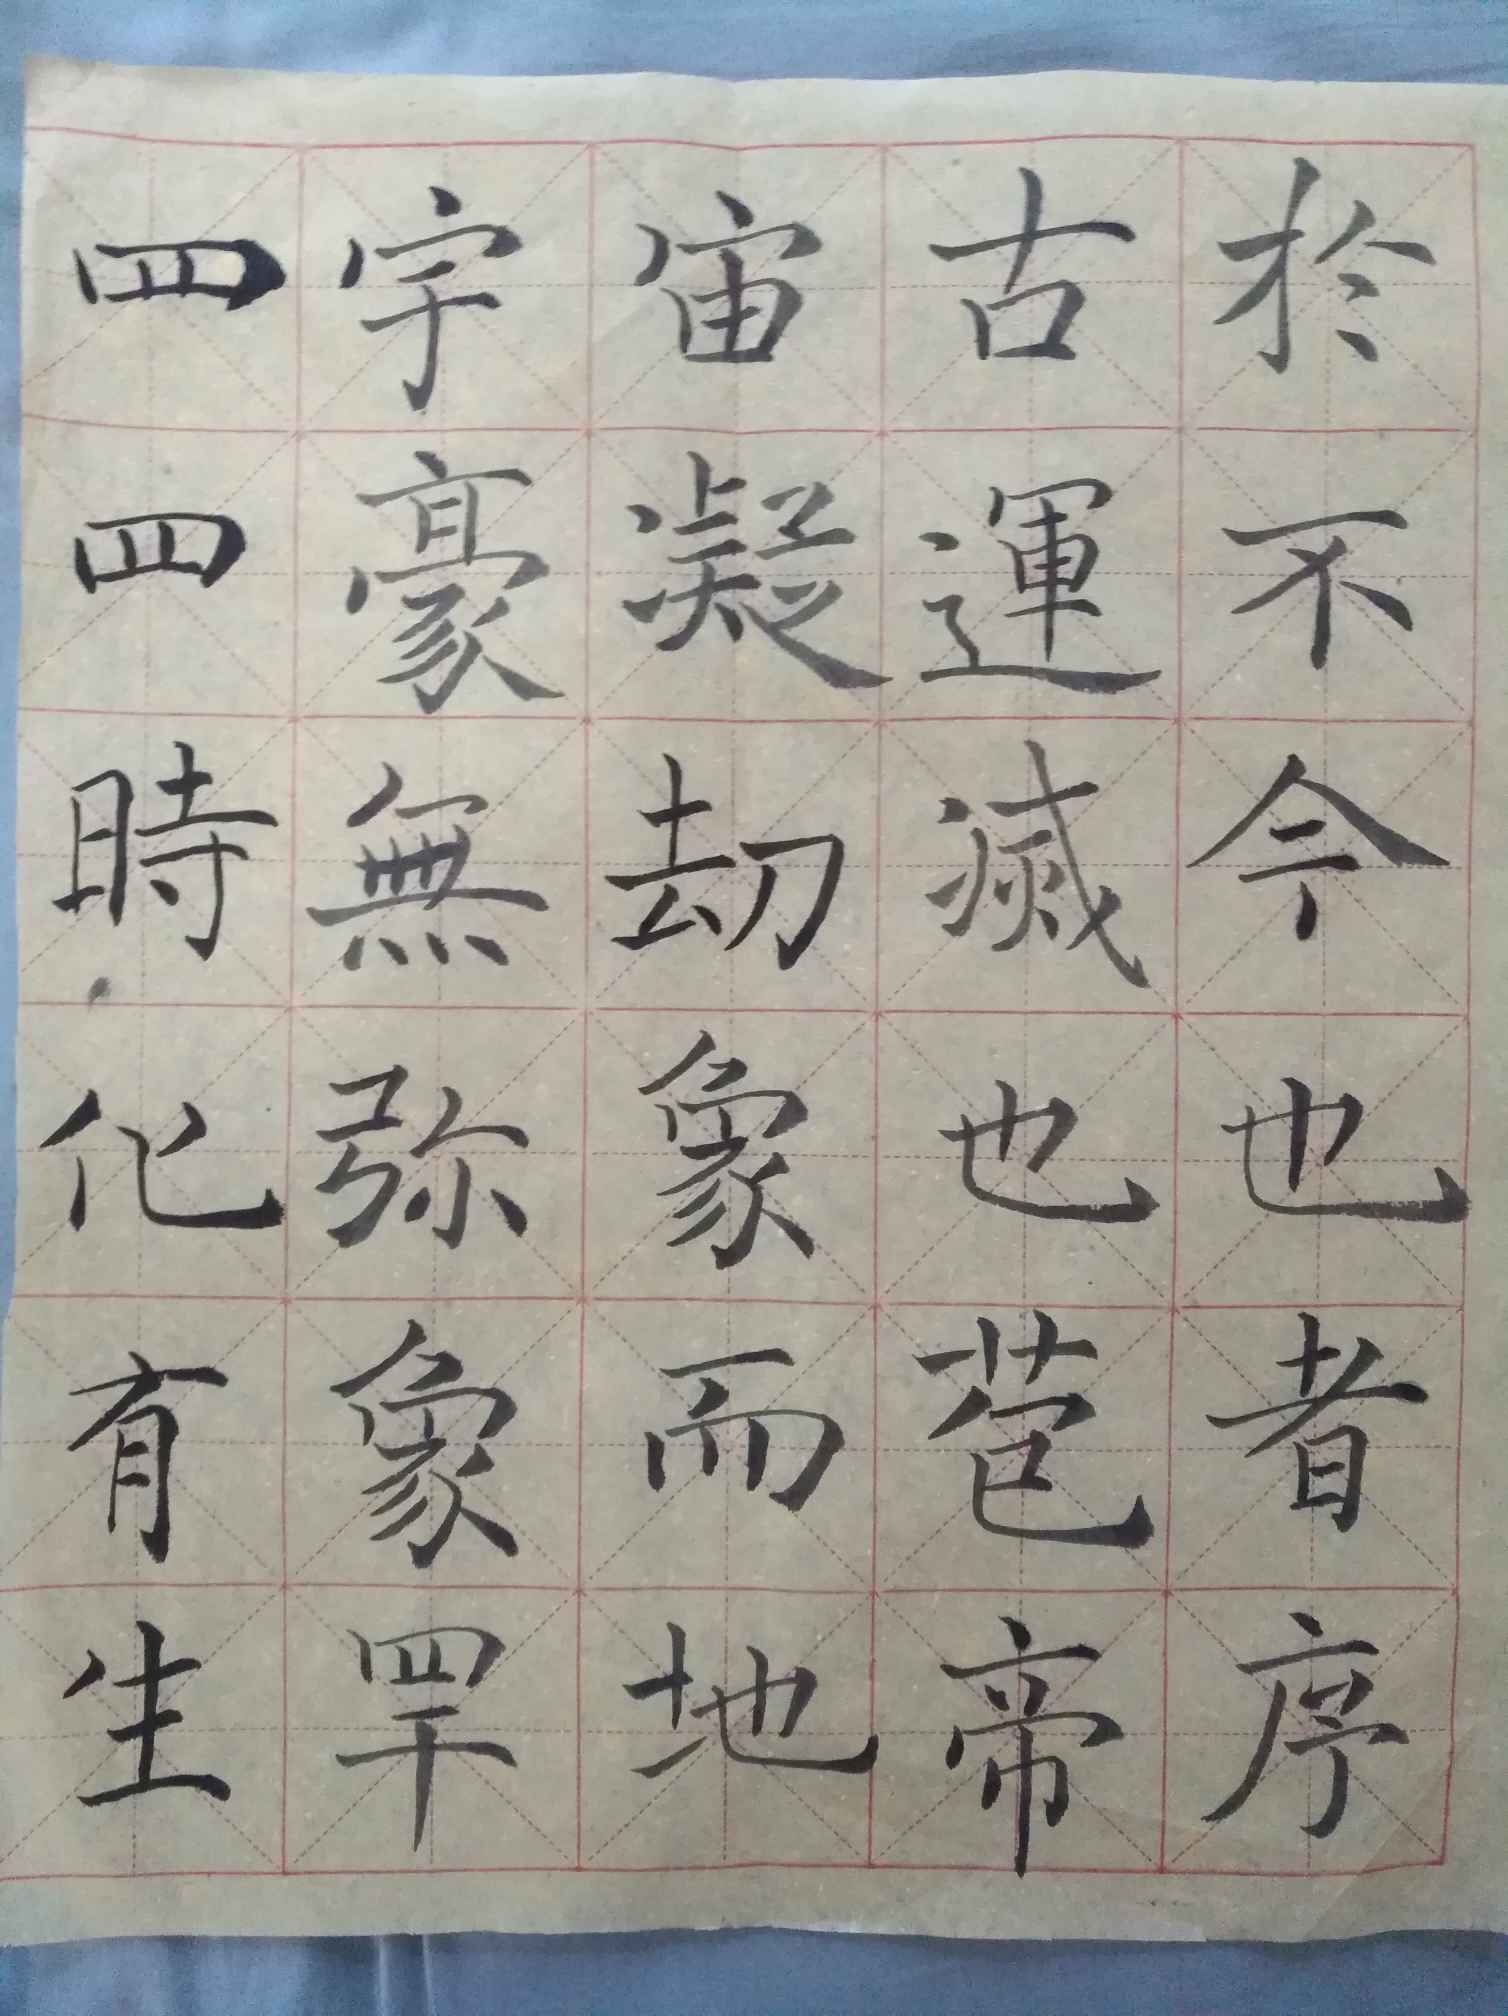 於不今也者序
古運滅也苞帝
宙凝劫象而地
宇豪無弥象罕
四四時化有生